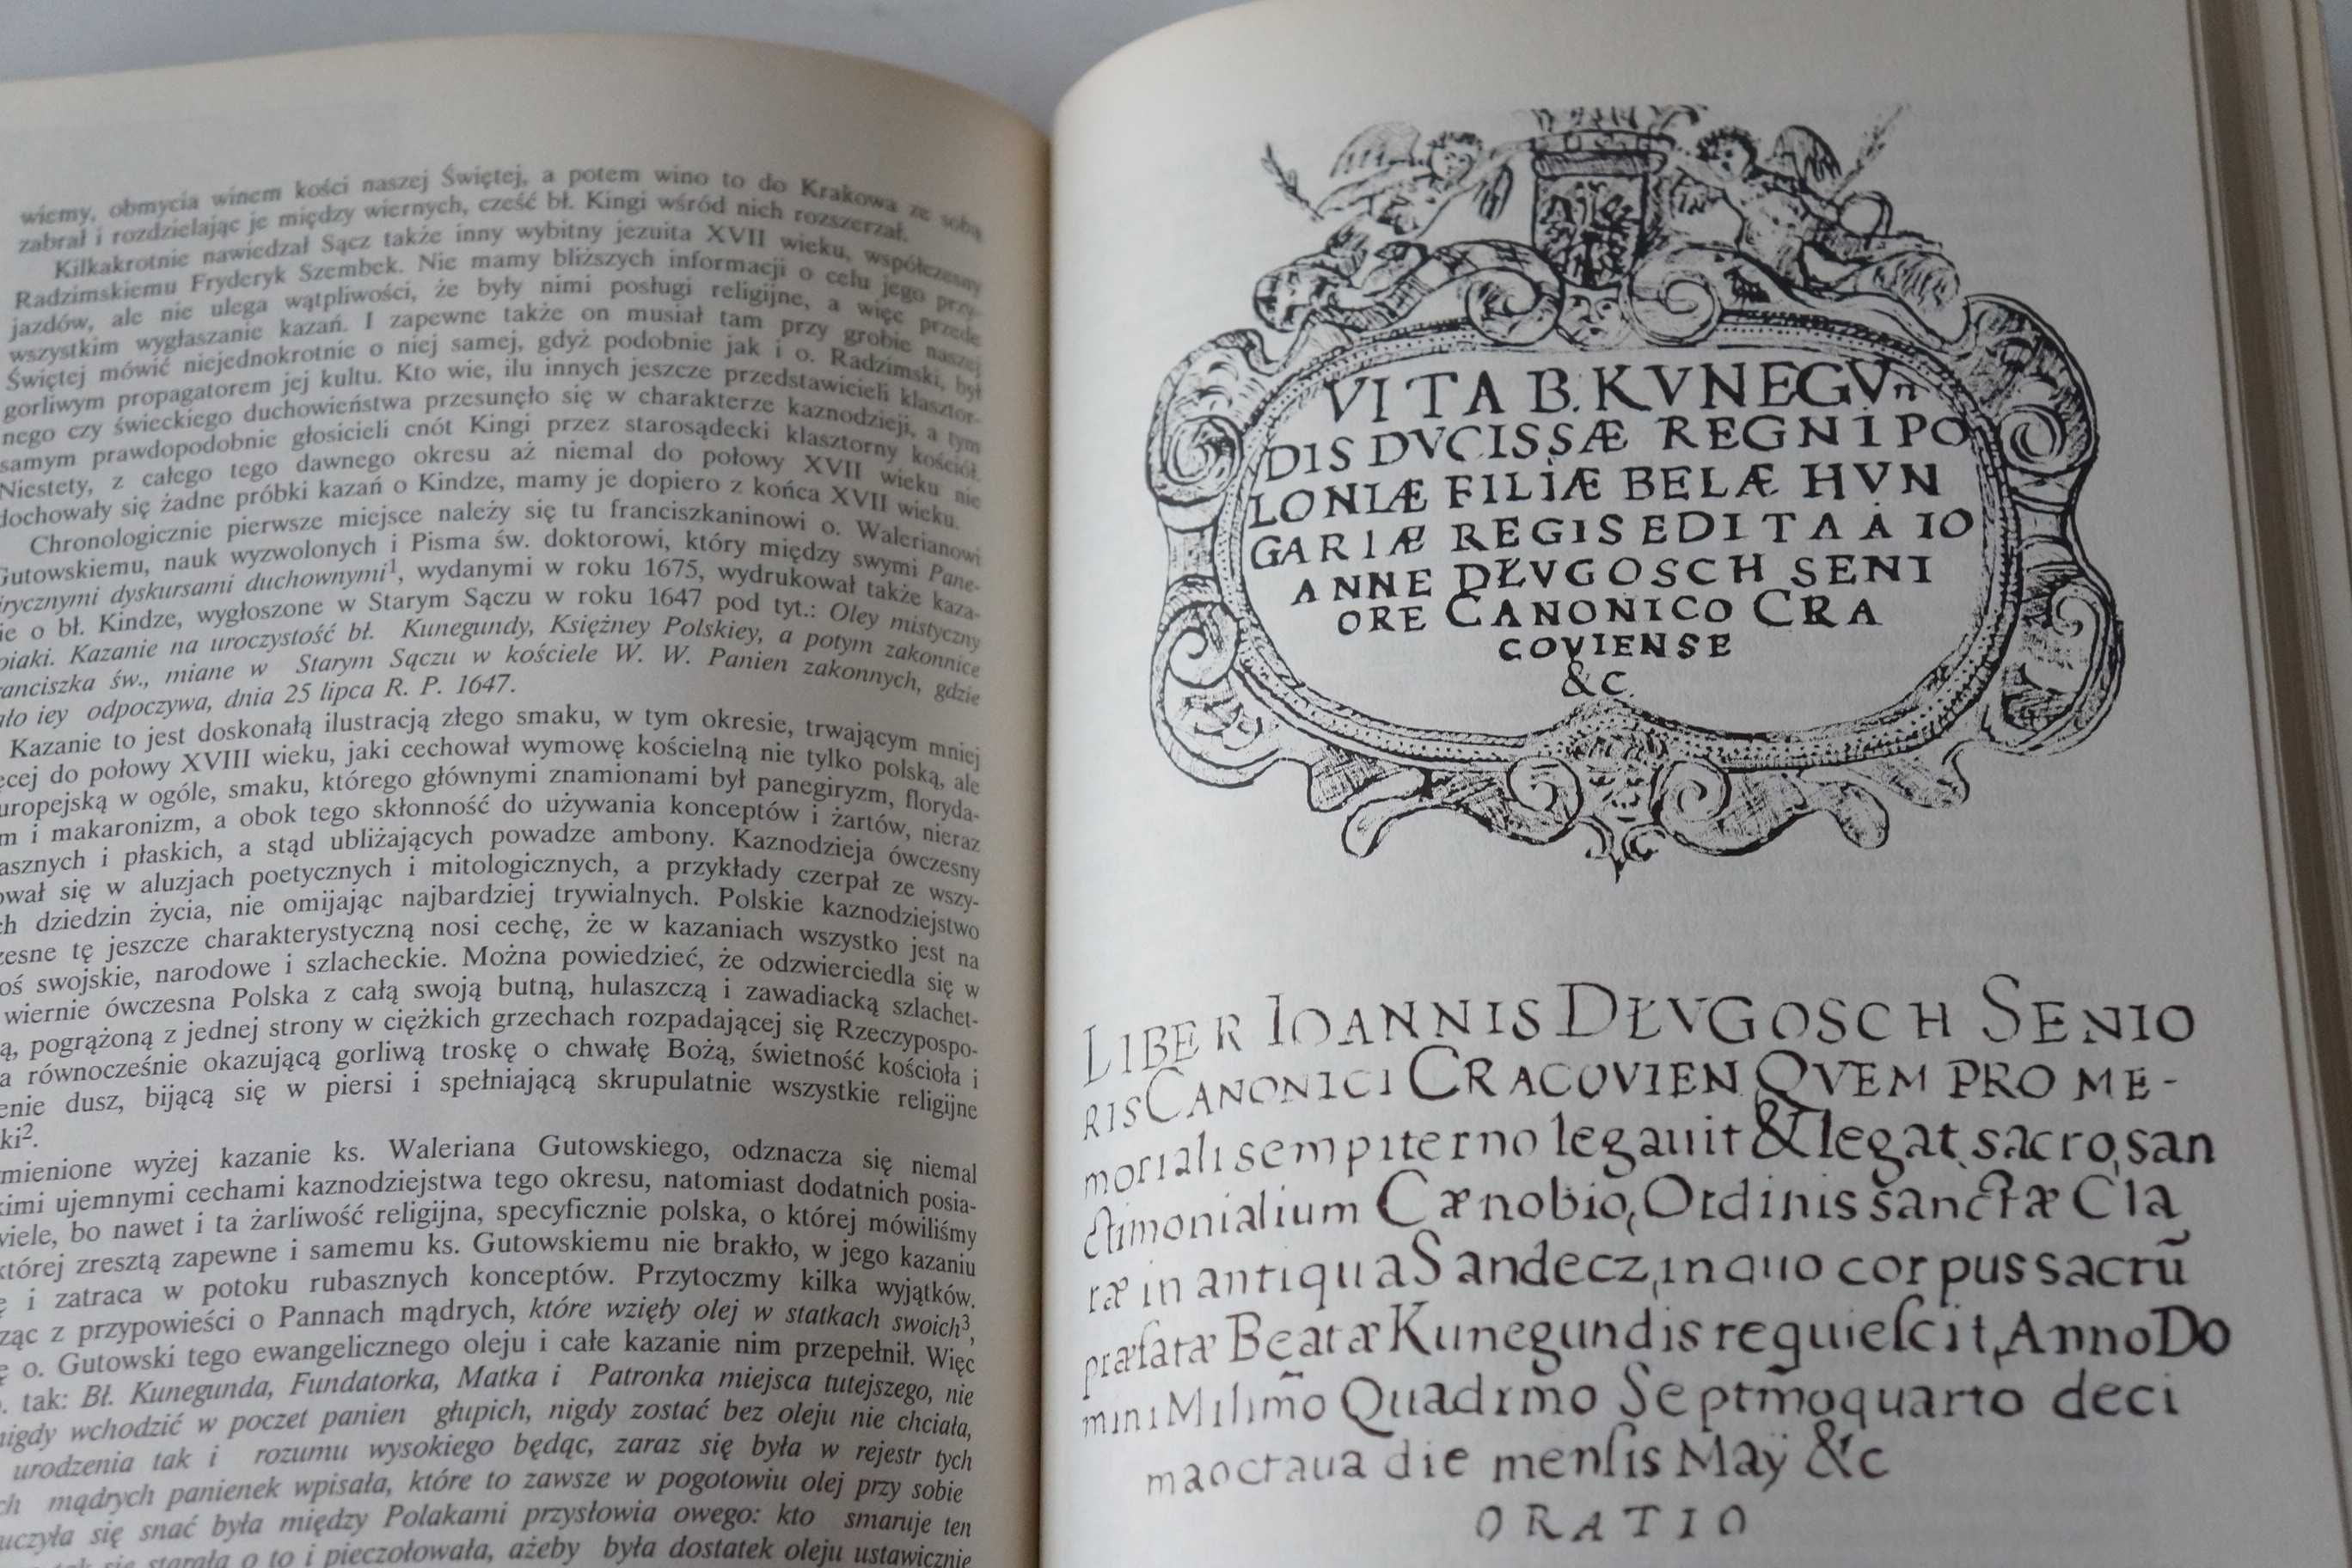 wiemy, obmycia winem kości naszej Świętej, a potem wino to do Krakowa ze sobą
zabrał i rozdzielając je między wiernych, cześć bł. Kingi wśród nich rozszerzał.
Kilkakrotnie nawiedzał Sącz także inny wybitny jezuita XVII wieku, współczesny
Radzimskiemu Fryderyk Szembek. Nie mamy bliższych informacji o celu jego przy-
jazdów, ale nie ulega wątpliwości, że były nimi posługi religijne, a więc przede
wszystkim wygłaszanie kazań. I zapewne także on musiał tam przy grobie naszej
Świętej mówić niejednokrotnie o niej samej, gdyż podobnie jak i o. Radzimski, był
gorliwym propagatorem jej kultu. Kto wie, ilu innych jeszcze przedstawicieli klasztor-
nego czy świeckiego duchowieństwa przesunęło się w charakterze kaznodzieji, a tym
samym prawdopodobnie głosicieli cnót Kingi przez starosądecki klasztorny kościół.
Niestety, z całego tego dawnego okresu aż niemal do połowy XVII wieku nie
dochowały się żadne próbki kazań o Kindze, mamy je dopiero z końca XVII wieku.
Chronologicznie pierwsze miejsce należy się tu franciszkaninowi o. Walerianowi
Gutowskiemu, nauk wyzwolonych i Pisma św. doktorowi, który między swymi Pane-
irycznymi dyskursami duchownymi¹, wydanymi w roku 1675, wydrukował także kaza-
ie o bł. Kindze, wygłoszone w Starym Sączu w roku 1647 pod tyt.: Oley mistyczny
piaki. Kazanie na uroczystość bł. Kunegundy, Księżney Polskiey, a potym zakonnice
ranciszka św., miane w Starym Sączu w kościele W. W. Panien zakonnych, gdzie
ało iey odpoczywa, dnia 25 lipca R. P. 1647.
Kazanie to jest doskonałą ilustracją złego smaku, w tym okresie, trwającym mniej
ęcej do połowy XVIII wieku, jaki cechował wymowę kościelną nie tylko polską, ale
uropejską w ogóle, smaku, którego głównymi znamionami był panegiryzm, floryda-
m i makaronizm, a obok tego skłonność do używania konceptów i żartów, nieraz
asznych i płaskich, a stąd ubliżających powadze ambony. Kaznodzieja ówczesny
ował się w aluzjach poetycznych i mitologicznych, a przykłady czerpał ze wszy-
ch dziedzin życia, nie omijając najbardziej trywialnych. Polskie kaznodziejstwo
zesne tę jeszcze charakterystyczną nosi cechę, że w kazaniach wszystko jest na
oś swojskie, narodowe i szlacheckie. Można powiedzieć, że odzwierciedla się w
wiernie ówczesna Polska z całą swoją butną, hulaszczą i zawadiacką szlachet-
ą, pogrążoną z jednej strony w ciężkich grzechach rozpadającej się Rzeczypospo-
a równocześnie okazującą gorliwą troskę o chwałę Bożą, świetność kościoła i
enie dusz, bijącą się w piersi i spełniającą skrupulatnie wszystkie religijne
ki².
mienione wyżej kazanie ks. Waleriana Gutowskiego, odznacza się niemal
kimi ujemnymi cechami kaznodziejstwa tego okresu, natomiast dodatnich posia-
viele, bo nawet i ta żarliwość religijna, specyficznie polska, o której mówiliśmy
której zresztą zapewne i samemu ks. Gutowskiemu nie brakło, w jego kazaniu
ę i zatraca w potoku rubasznych konceptów. Przytoczmy kilka wyjątków.
ząc z przypowieści o Pannach mądrych, które wzięły olej w statkach swoich³,
ę o. Gutowski tego ewangelicznego oleju i całe kazanie nim przepełnił. Więc
. tak: Bł. Kunegunda, Fundatorka, Matka i Patronka miejsca tutejszego, nie
nigdy wchodzić w poczet panien głupich, nigdy zostać bez oleju nie chciała,
urodzenia tak i rozumu wysokiego będąc, zaraz się była w rejestr tych
ch mądrych panienek wpisała, które to zawsze w pogotowiu olej przy sobie
uczyła się snać była między Polakami przysłowia owego: kto smaruje ten
tak się starała o to i pieczołowała, ażeby była dostatek oleju ustawicznie
VITA B. KVNEGVn
DIS DVCISSÆ REGNI PO
LONIÆ FILIÆ BELÆ HVN
GARIÆ REGIS EDITA A IO
ANNE DŁVGOSCH SENI
ORE CANONICO CRA
COVIENSE
&c
LIBER IOANNIS DŁVGOSCH SENIO
RIS CANONICI CRACOVIEN QVEM PRO ME-
moriali sempiterno legauit & legat sacro san
ctimonialium Cænobio, Ordinis sanctæ Cla
ræ in antiqua Sandecz, in quo corpus sacrũ
præfatæ Beatæ Kunegundis requieſcit, Anno Do
mini Milim̃o Quadrm̃o Septm̃oquarto deci
maoctaua die menſis Maÿ &c
ORATIO